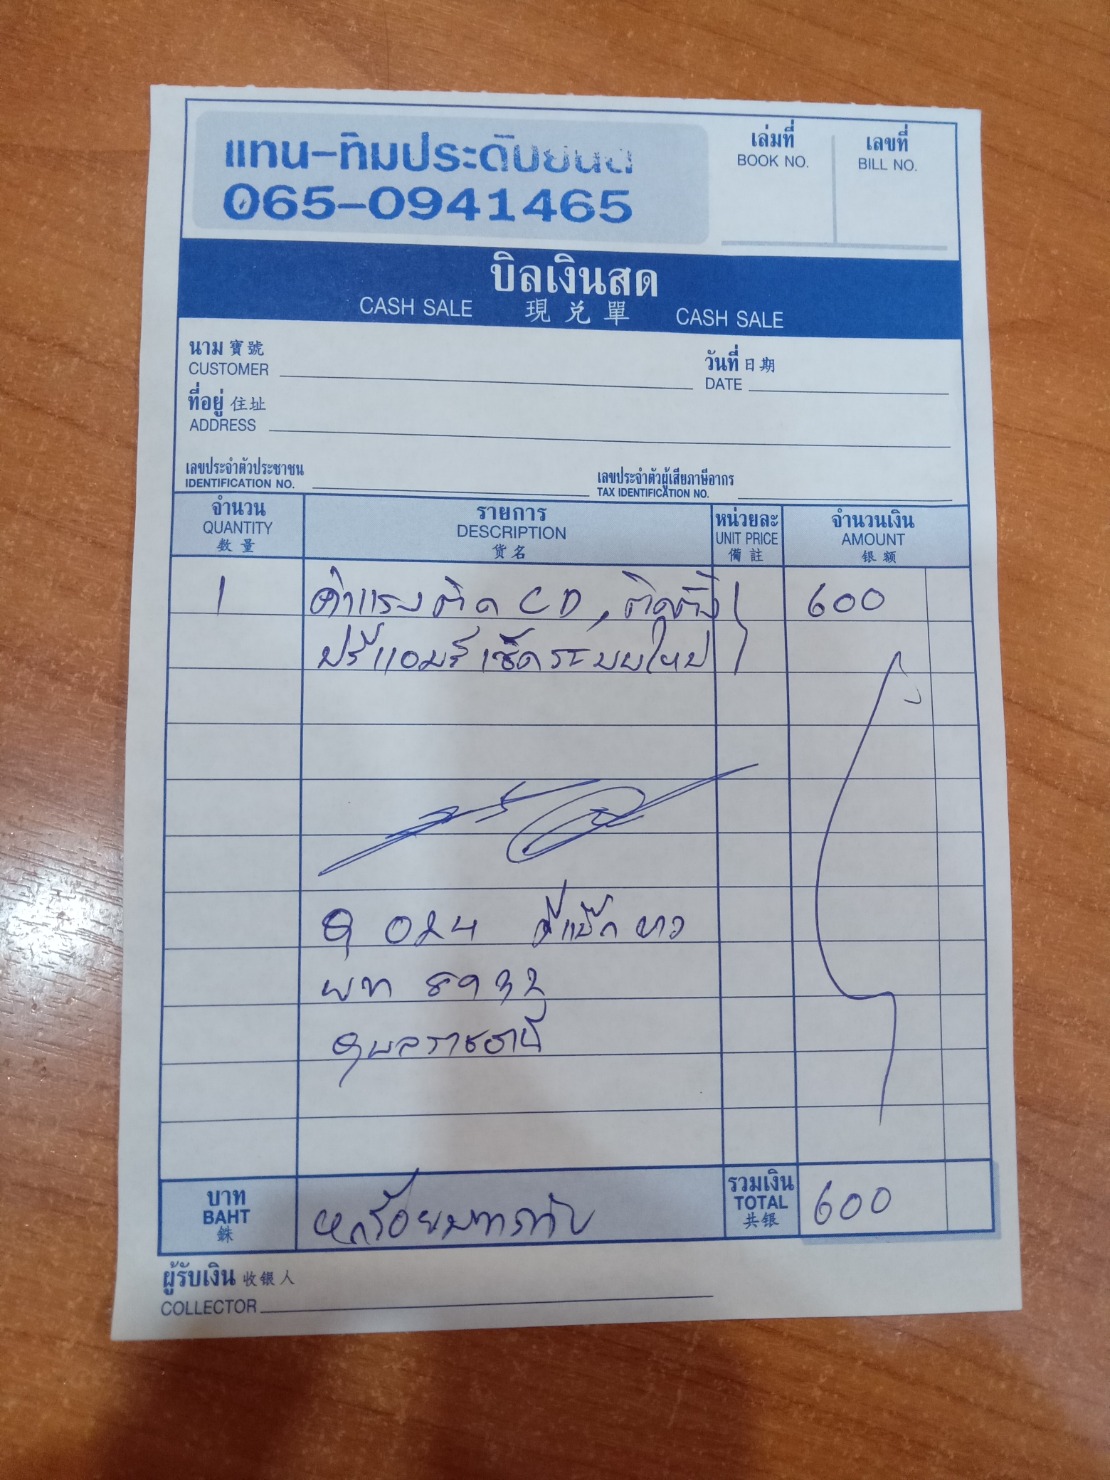 แทน-ทิมประดับยนต์
065-0941465
เล่มที่
BOOK NO.
เลขที่
BILL NO.
บิลเงินสด
CASH SALE 現兑單 CASH SALE
นาม 寶號
CUSTOMER
วันที่ 日期
DATE
ที่อยู่ 住址
ADDRESS
เลขประจำตัวประชาชน
IDENTIFICATION NO.
เลขประจำตัวผู้เสียภาษีอากร
TAX IDENTIFICATION NO.
จำนวน
QUANTITY
数量
รายการ
DESCRIPTION
货名
หน่วยละ
UNIT PRICE
備註
จำนวนเงิน
AMOUNT
银额
1 ค่าแรงติด CD, ติดตั้ง 600
ปรีแอมร์เซ็ตระบบใหม่
024 ดีแม็ก ขาว
ผท 8932
อุบลราชธานี
บาท
BAHT
銖
หกร้อยบาทถ้วน
รวมเงิน
TOTAL
共银
600
ผู้รับเงิน 收银人
COLLECTOR